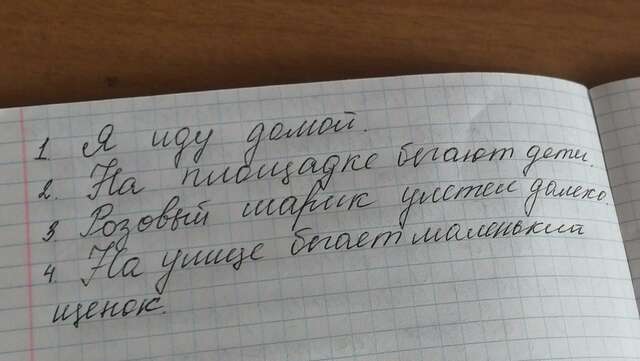 1. Я иду домой.
2. На площадке бегают дети.
3. Розовый шарик улетел далеко.
4. На улице бегает маленький
щенок.